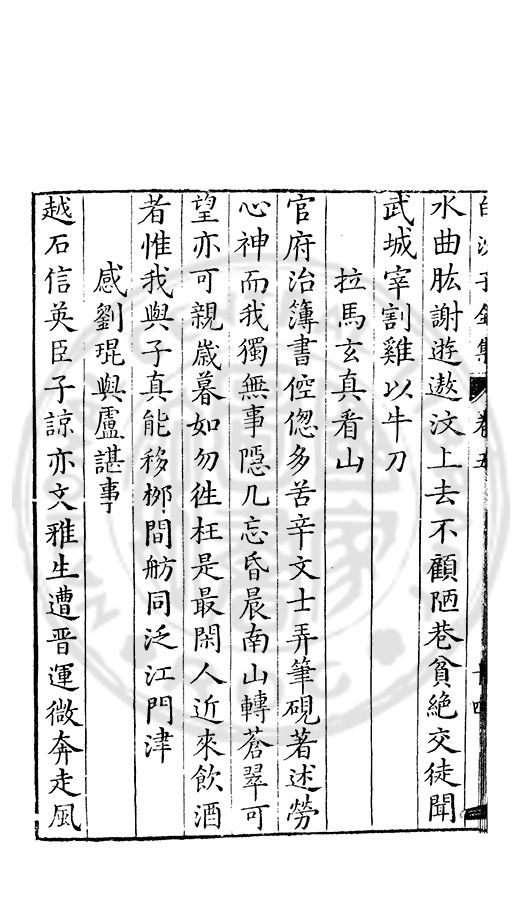 水曲肱謝遊遨汶上去不顧陋巷貧絶交徒聞
武城宰割雞以牛刀
拉馬玄真看山
官府治簿書倥偬多苦辛文士弄筆硯著述勞
心神而我獨無事隱几忘昏晨南山轉蒼翠可
望亦可親歲暮如勿徃枉是最閑人近來飲酒
者惟我與子真能移柳間舫同泛江門津
感劉琨與盧諶事
越石信英臣子諒亦文雅生遭晋運微奔走風